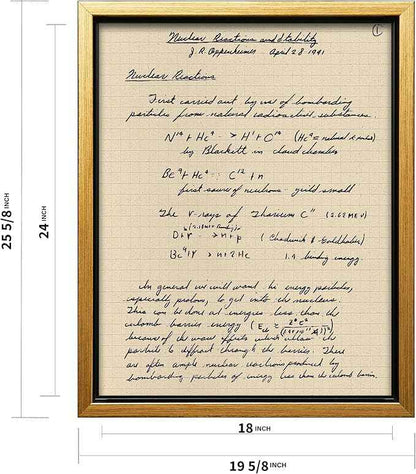 ①
Nuclear Reactions and Stability
J. R. Oppenheimer April 28 1941
Nuclear Reactions
First carried out by use of bombarding
particles from natural radioactive substances.
N¹⁴ + He⁴ → H¹ + O¹⁷ (He⁴ = natural α rules)
by Blackett in cloud chamber
Be⁹ + He⁴ → C¹² + n
first source of neutrons - yield small
The γ-rays of Thorium C" (2.62 MeV)
D + γ → n + p (Chadwick & Goldhaber)
Be⁹ + γ → n + 2He 1.1 binding energy.
In general we will want the energy particles,
especially protons, to get into the nucleus.
This can be done at energies less than the
coulomb barrier energy
because of the wave effects which allow the
particle to diffract through the barrier. There
are often ample nuclear reactions produced by
bombarding particles of energy less than the coulomb barrier.
25 5/8 INCH
24 INCH
18 INCH
19 5/8 INCH